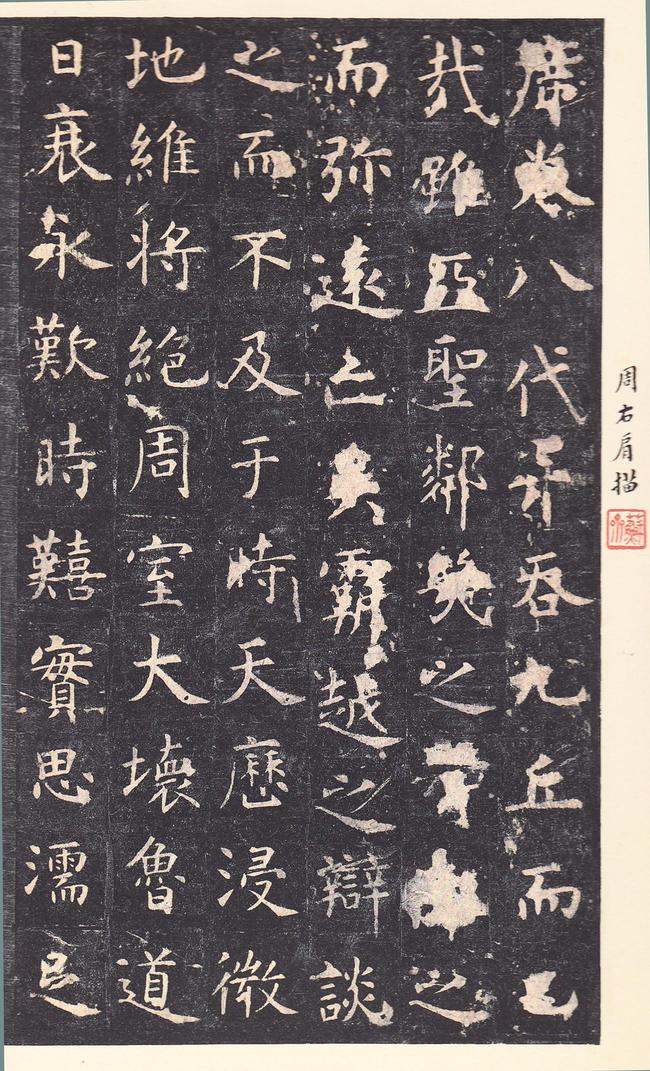 席卷八代并吞九丘而已
哉雖亞聖鄰幾之之
而弥遠亡吳霸越之辯談
之而不及于時天歷浸微
地維將絕周室大壞魯道
日衰永歎時囏實思濡足
周右肩描